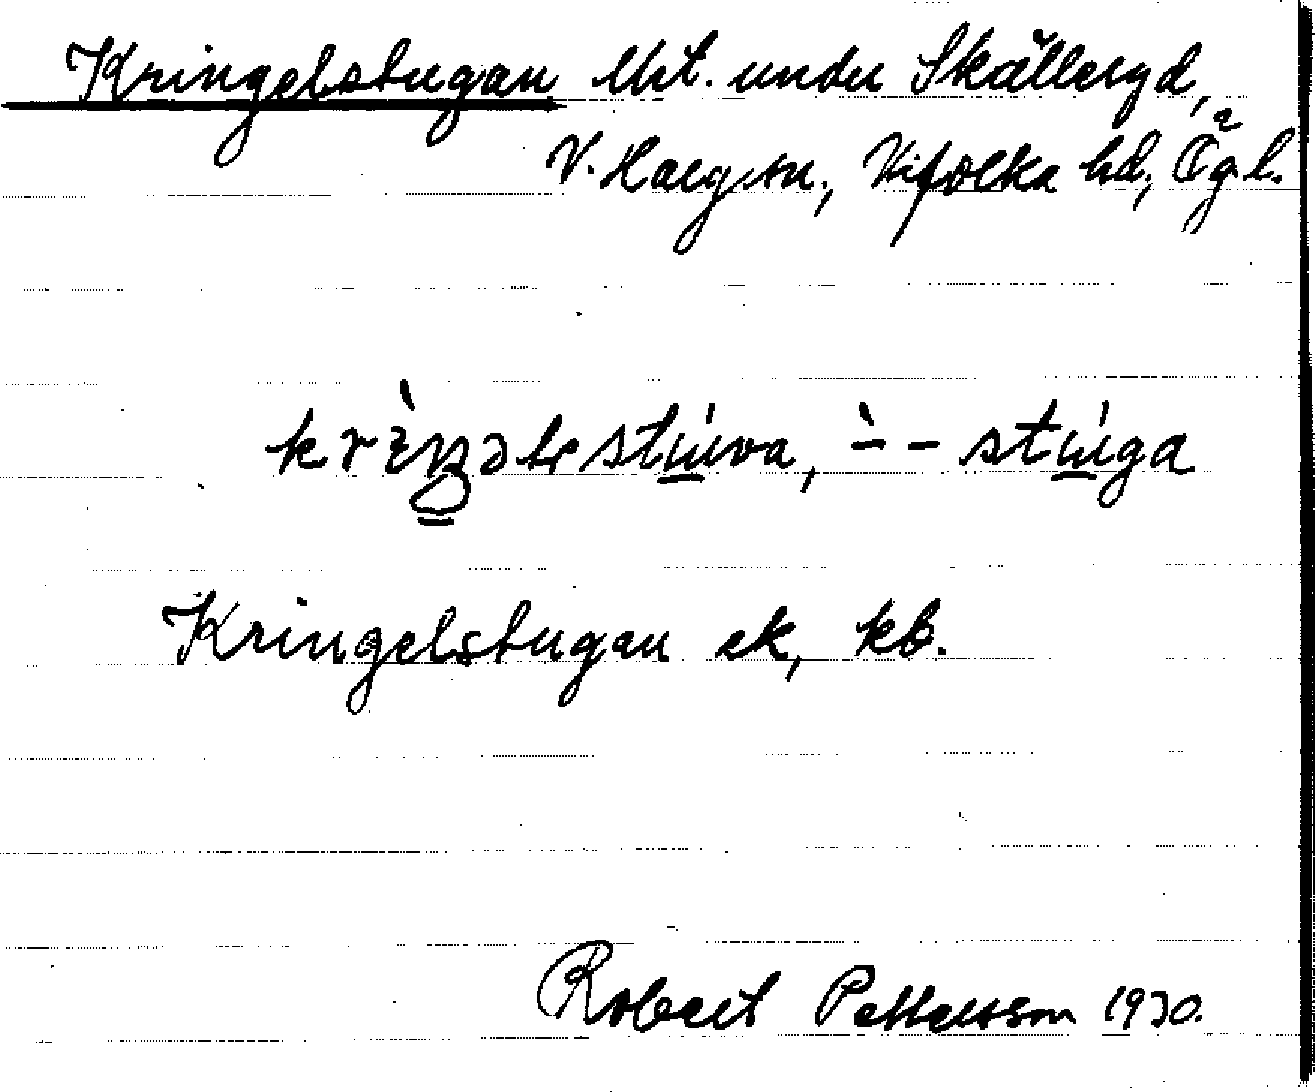 Kringelstugan Urt. under Skälleryd,
V. Harg sn., Vifolka hd, Ög.l.
krìŋəlstúva, ̀ - - stúga
Kringelstugan ek, kb.
Robert Pettersson 1930.